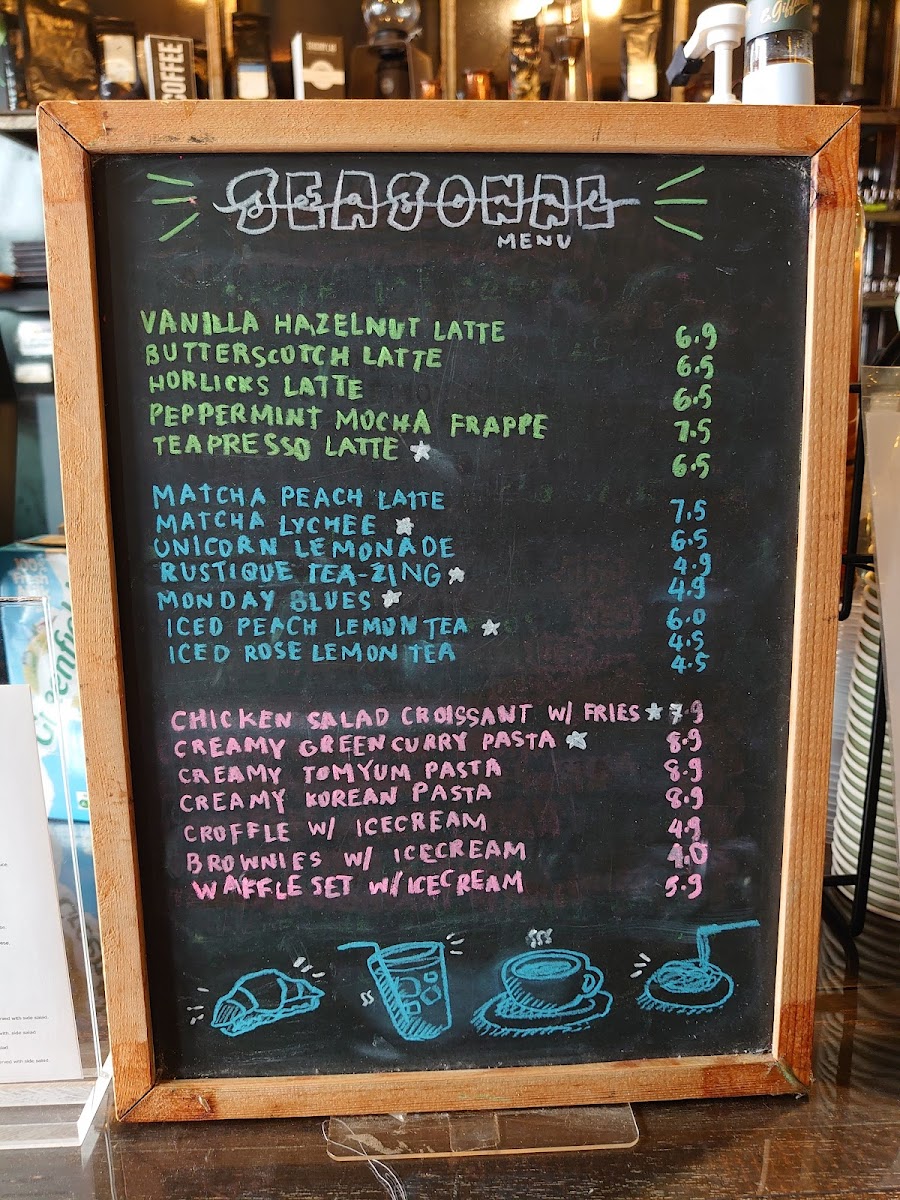 COFFEE
& Gift
SEASONAL
MENU
VANILLA HAZELNUT LATTE 6.9
BUTTERSCOTCH LATTE 6.5
HORLICKS LATTE 6.5
PEPPERMINT MOCHA FRAPPE 7.5
TEAPRESSO LATTE ☆ 6.5
MATCHA PEACH LATTE 7.5
MATCHA LYCHEE ☆ 6.5
UNICORN LEMONADE 4.9
RUSTIQUE TEA-ZING ☆ 4.9
MONDAY BLUES ☆ 6.0
ICED PEACH LEMON TEA ☆ 4.5
ICED ROSE LEMON TEA 4.5
CHICKEN SALAD CROISSANT W/ FRIES ☆ 7.9
CREAMY GREEN CURRY PASTA ☆ 8.9
CREAMY TOMYUM PASTA 8.9
CREAMY KOREAN PASTA 8.9
CROFFLE W/ ICECREAM 4.9
BROWNIES W/ ICECREAM 4.0
WAFFLE SET W/ ICECREAM 5.9